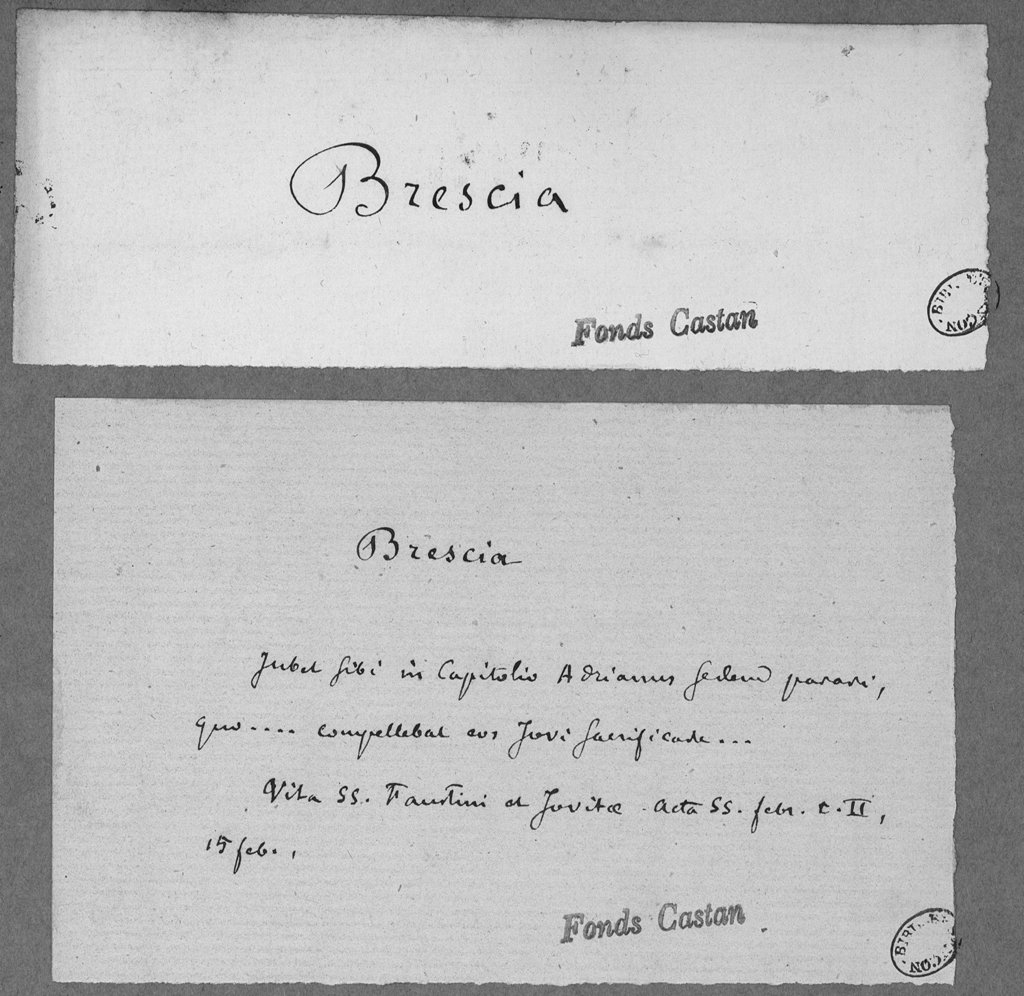 Brescia
Fonds Castan
Brescia
Jubet sibi in Capitolio Adrianus sedem parari,
quo.... compellebat eos Jovi sacrificare...
Vita SS. Faustini et Jovitæ. Acta SS. febr. t. II,
15 feb.,
Fonds Castan